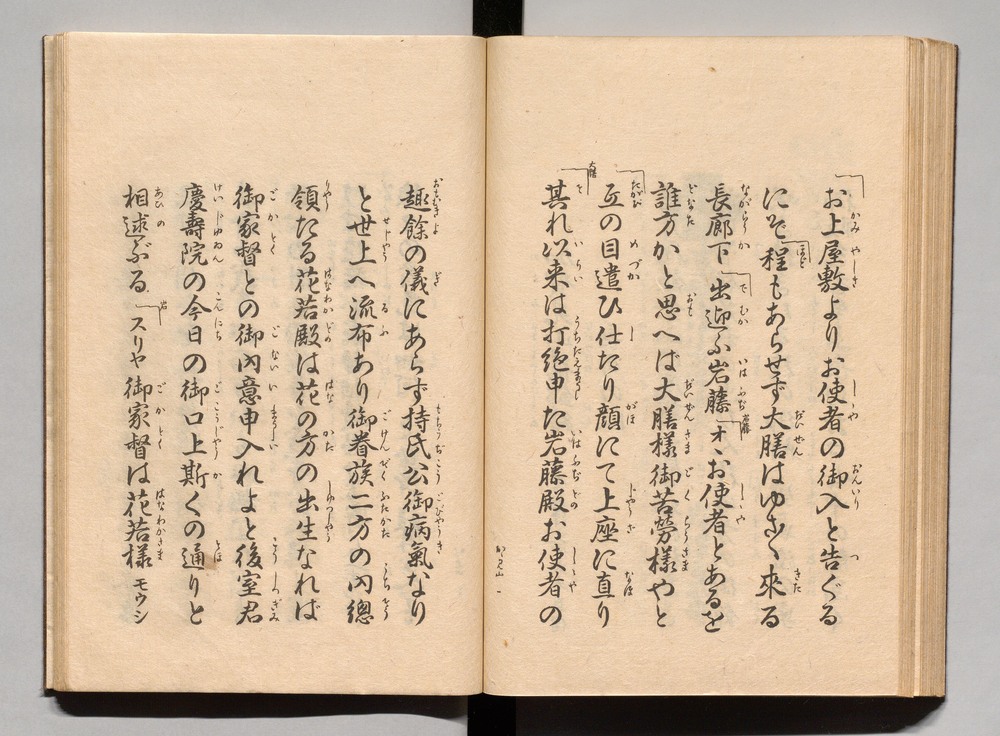 お上屋敷よりお使者の御入と告ぐる
にぞ程もあらせず大膳はゆたく來る
長廊下出迎ふ岩藤オヽお使者とあるを
誰方かと思へば大膳様御苦勞様やと
互の目遣ひ仕たり顔にて上座に直り
其れ以来は打絶申た岩藤殿お使者の
趣餘の儀にあらず持氏公御病氣なり
と世上へ流布あり御眷族二方の内總
領たる花若殿は花の方の出生なれば
御家督との御内意申入れよと後室君
慶壽院の今日の御口上斯くの通りと
相述ぶるスリヤ御家督は花若様モウシ